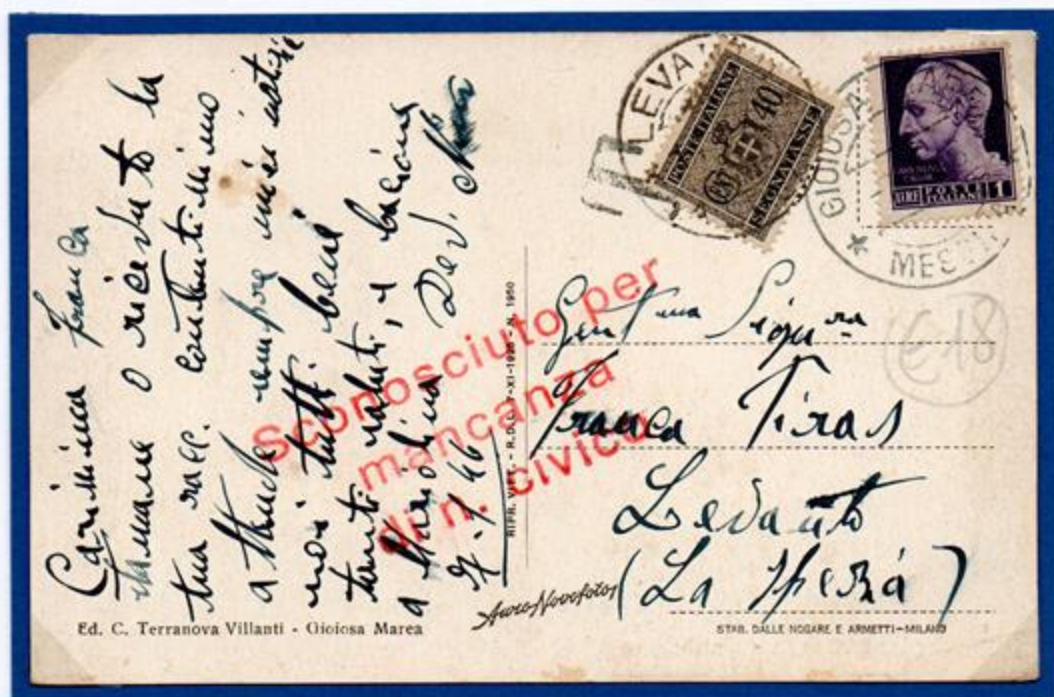 Carissima Franca
stamane o ricevuto la
tua racc. contentissimo
attende sempre miei notizie
noi tutti bene
tanti saluti, e bacioni
a Mariolina Dev.
9.1.46
Ed. C. Terranova Villanti - Gioiosa Marea
RIPR. VIET. - R.D.L. 7-XI-1925 - N. 1950
Sconosciuto per
mancanza
di n. civico
LEVAN
POSTE ITALIANE
CENT 40
SEGNATASSE
T
GIOIOSA MAREA
MESSINA
LIRE POSTE ITALIANE 1
€ 18
Gent ma Sigra
Franca Tiras
Levanto
(La Spezia)
STAB. DALLE NOGARE E ARMETTI-MILANO